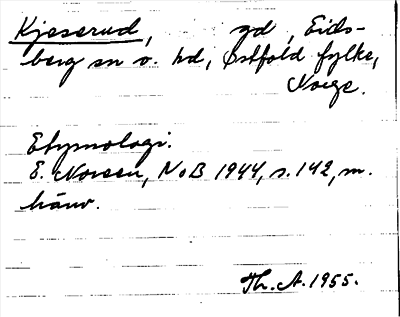 Kjeserud, gd, Eids-
berg sn o. hd, Østfold fylke,
Norge.
Etymologi.
E. Noreen, NoB 1944, s. 142, m.
hänv.
Th. A. 1955.